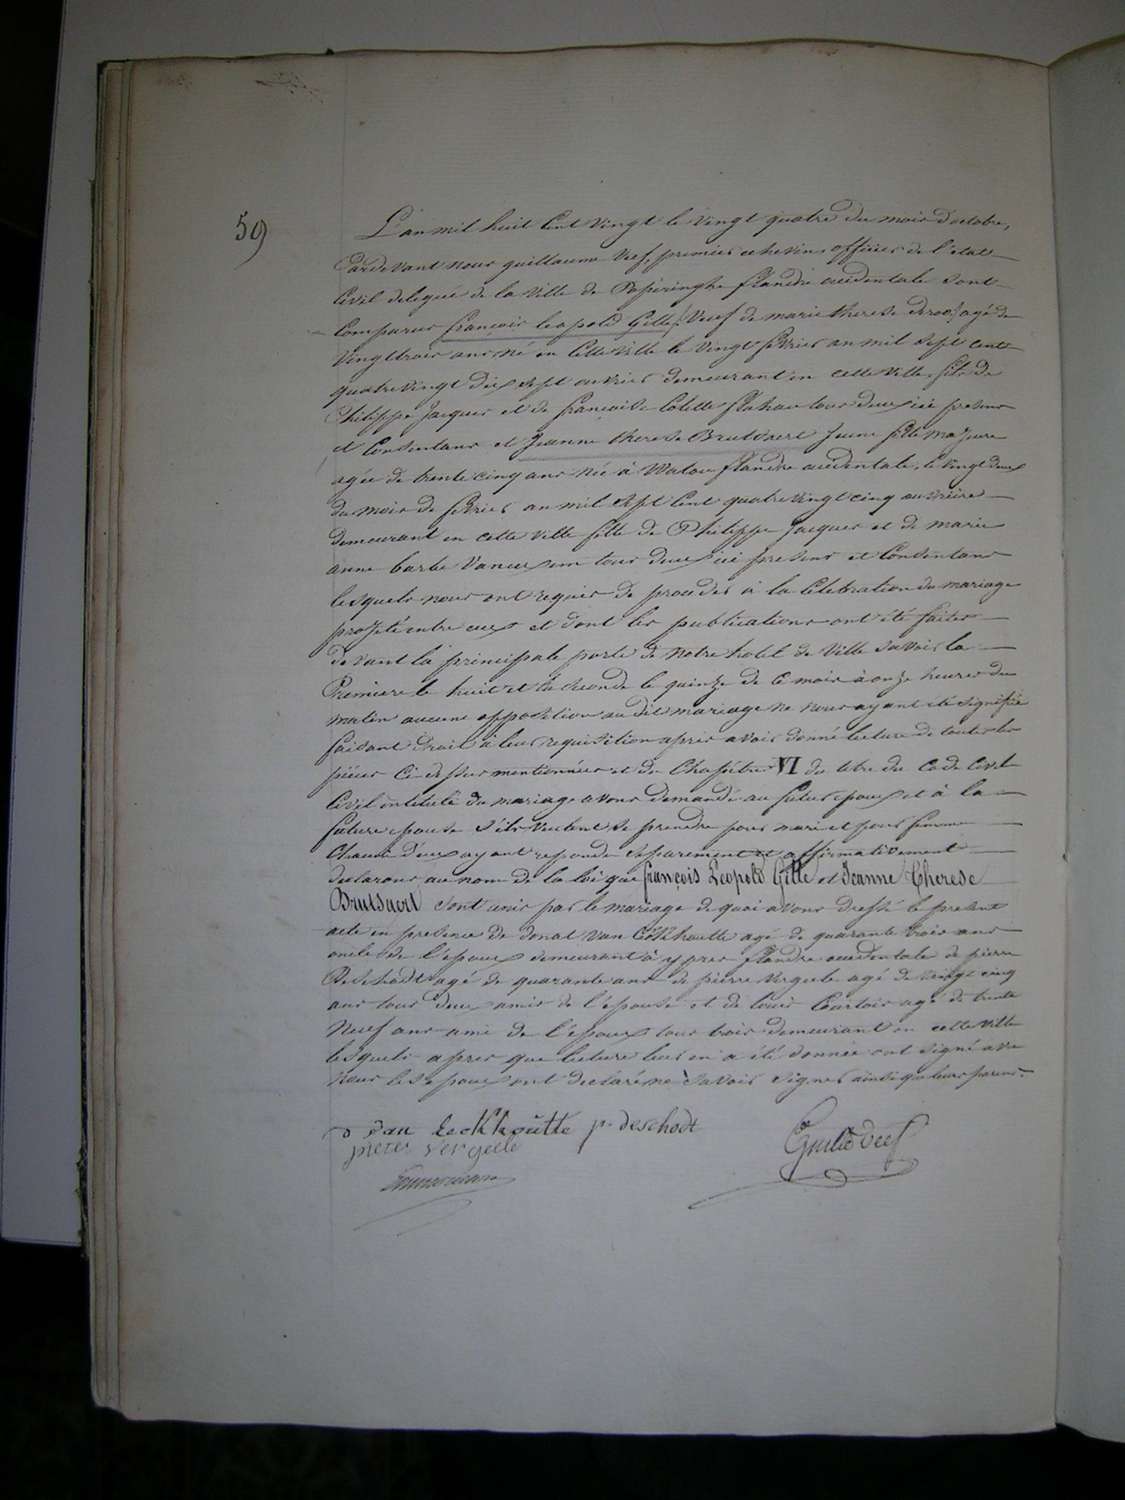 59
L'an mil huit cent vingt le vingt quatre du mois d'octobre,
Pardevant nous guillaume Veef, premier echevin officier de l'etat
Civil delegué de la Ville de Poperinghe flandre occidentale sont
Comparus françois leopold Gille, Veuf de marie therese agé de
Vingttrois ans né en Cette Ville le vingt fevrier an mil sept cent
quatrevingt dix sept ouvrier demeurant en cette Ville, fils de
Philippe Jacques et de françoise Colette tous deux ici presens
et Consentans et Jeanne therese Brutsaert Jeune fille majeure
agée de trente cinq ans née à Watou flandre occidentale, le vingt deux
du mois de fevrier an mil sept Cent quatre vingt cinq ouvriere
demeurant en cette Ville fille de Philippe Jacques et de marie
anne barbe tous deux ici presens et Consentans
lesquels nous ont requis de proceder à la Célébration du mariage
projeté entre eux et dont les publications ont été faites
devant la principale porte de notre hotel de Ville savoir la
Premiere le huit et la seconde le quinze de ce mois à onze heures du
matin aucune opposition au dit mariage ne nous ayant été signifiée
faisant droit à leur requisition apres avoir donné lecture de toutes les
pieces Ci-dessus mentionnées et du Chapitre VI du titre du Code Civil
Civil intitulé du mariage avons demandé au futur epoux et à la
future epouse s'ils veulent se prendre pour mari et pour femme
Chacun d'eux ayant repondu separement et affirmativement
declarons au nom de la loi que françois Leopold Gille et Jeanne Therese
Brutsaert sont unis par le mariage de quoi avons dressé le present
acte en presence de donat Van Eeckhoutte agé de quarante trois ans
oncle de l'epoux demeurant à ypres flandre occidentale de pierre
Deschodt agé de quarante ans de pierre Vergeele agé de vingt cinq
ans tous deux amis de l'epouse et de louis Courtois agé de trente
Neuf ans ami de l'epoux tous trois demeurant en cette Ville
lesquels apres que lecture leur en a été donnée ont signé avec
Nous les epoux ont declaré ne savoir signer ainsi que leurs parens.
d van Eeckhoutte p. deschodt
pieter vergeele